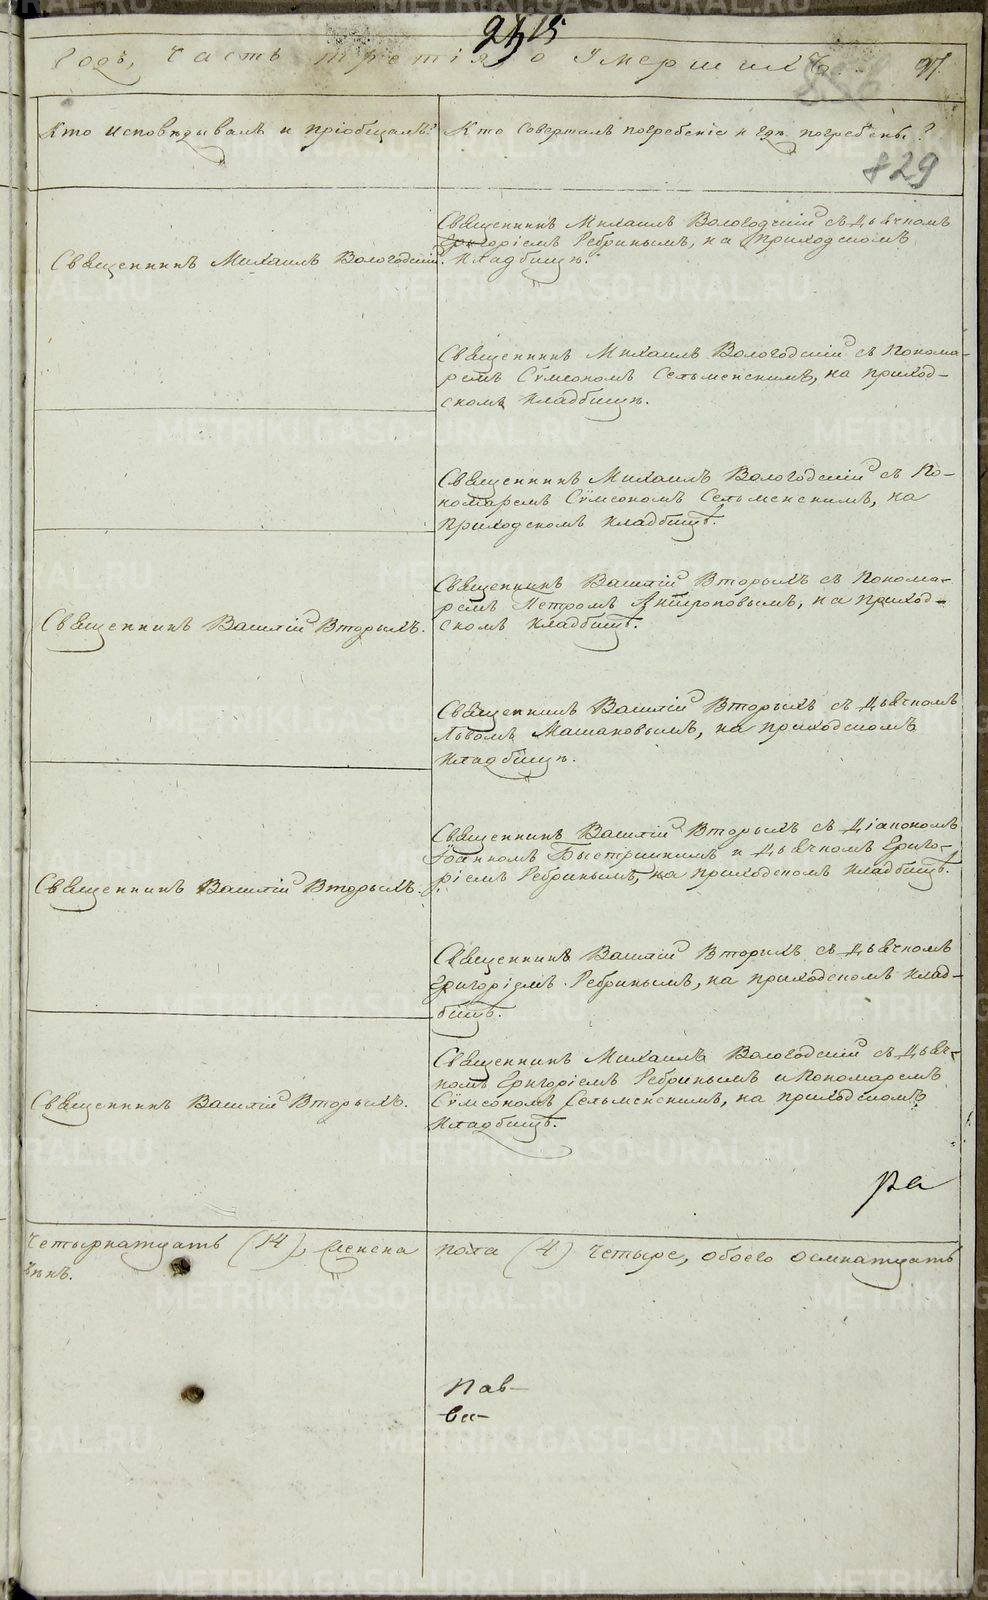 2415
Годъ, Часть третія о Умершихъ. 97.
829
Кто исповѣдывалъ и пріобщалъ? Кто совершалъ погребеніе и гдѣ погребены?
Священникъ Михаилъ Вологодскій.
Священникъ Михаилъ Вологодскій съ Дьячкомъ
Григоріемъ Ребринымъ, на приходскомъ
кладбищѣ.
Священникъ Михаилъ Вологодскій съ Понома-
ремъ Сѵмеономъ Сельменскимъ, на приход-
скомъ кладбищѣ.
Священникъ Михаилъ Вологодскій съ По-
номаремъ Сѵмеономъ Сельменскимъ, на
приходскомъ кладбищѣ.
Священникъ Василій Вторыхъ.
Священникъ Василій Вторыхъ съ Понома-
ремъ Петромъ Антроповымъ, на приход-
скомъ кладбищѣ.
Священникъ Василій Вторыхъ съ Дьячкомъ
Львомъ Машановымъ, на приходскомъ
кладбищѣ.
Священникъ Василій Вторыхъ.
Священникъ Василій Вторыхъ съ Діакономъ
Іоанномъ Быстрицкимъ и Дьячкомъ Григо-
ріемъ Ребринымъ, на приходскомъ кладбищѣ.
Священникъ Василій Вторыхъ съ Дьячкомъ
Григоріемъ Ребринымъ, на приходскомъ клад-
бищѣ.
Священникъ Василій Вторыхъ.
Священникъ Михаилъ Вологодскій съ Дьяч-
комъ Григоріемъ Ребринымъ и Пономаремъ
Сѵмеономъ Сельменскимъ, на приходскомъ
кладбищѣ.
ра
Четырнатцать (14), женска пола (4) Четыре, обоего осмнатцать
чккъ.
Пав-
ва-
METRIKI.GASO-URAL.RU